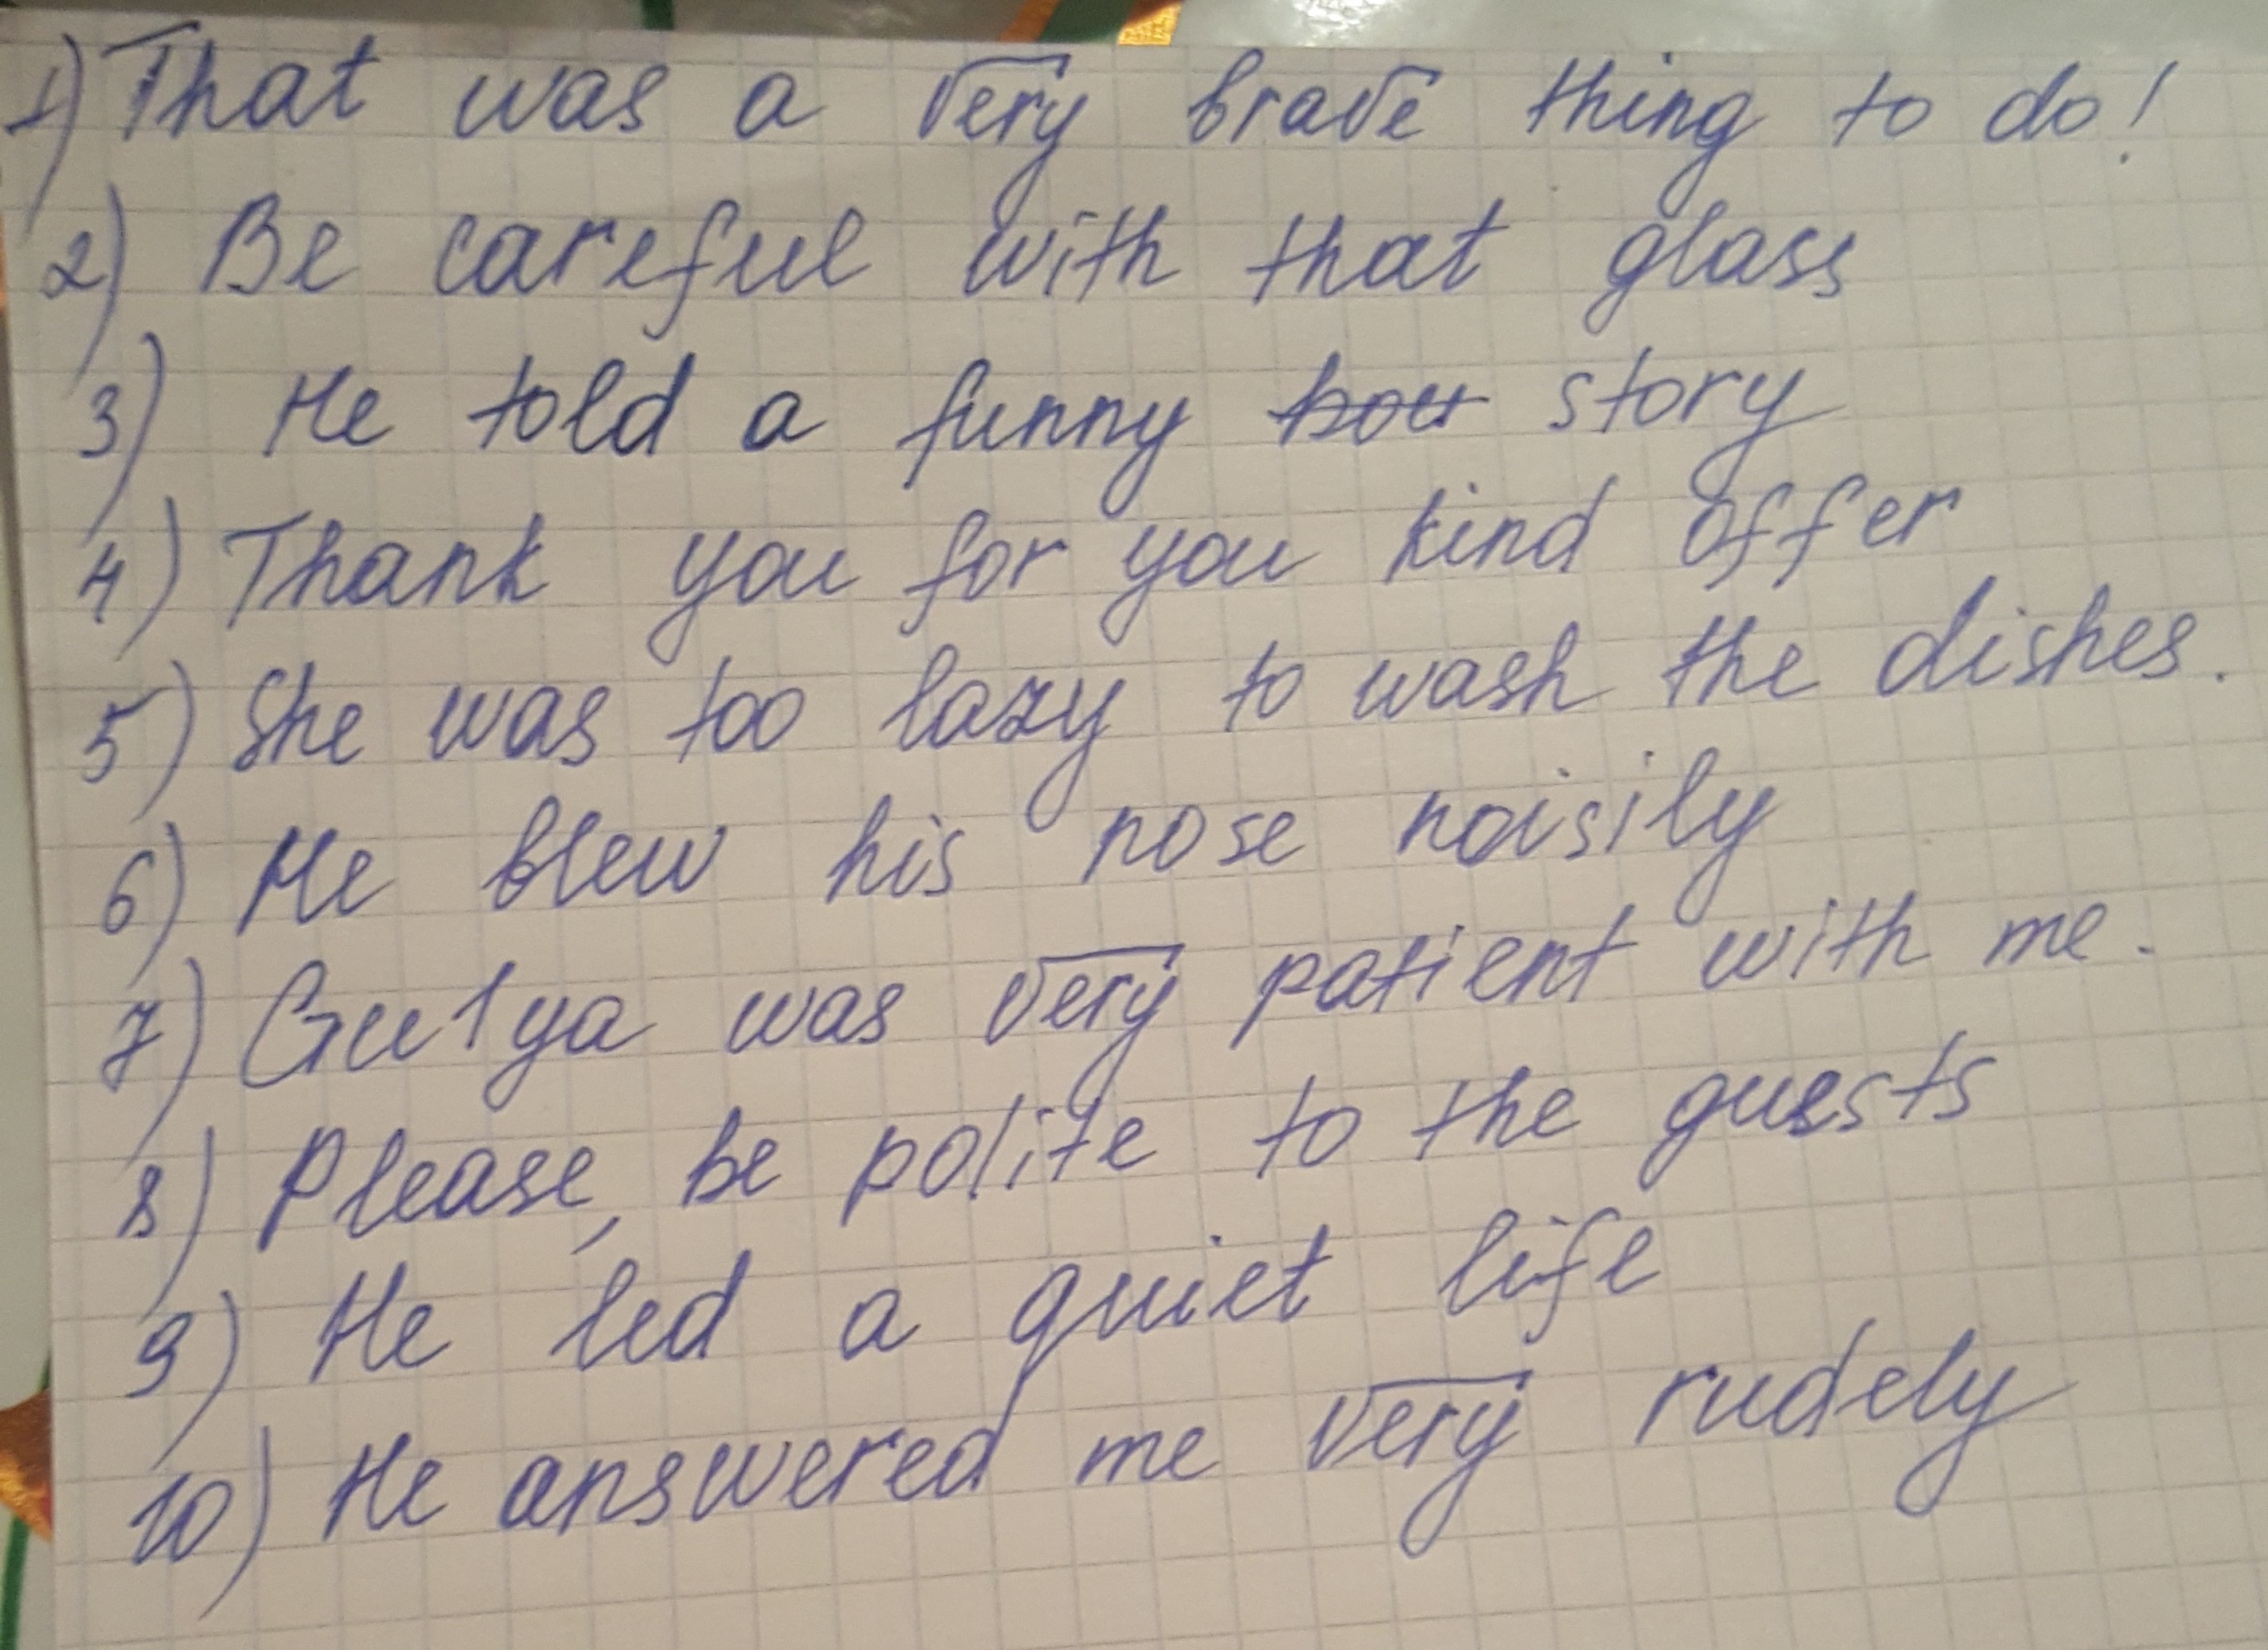 1) That was a very brave thing to do!
2) Be careful with that glass
3) He told a funny story
4) Thank you for you kind offer
5) She was too lazy to wash the dishes.
6) He blew his nose noisily
7) Gulya was very patient with me.
8) Please, be polite to the guests
9) He led a quiet life
10) He answered me very rudely